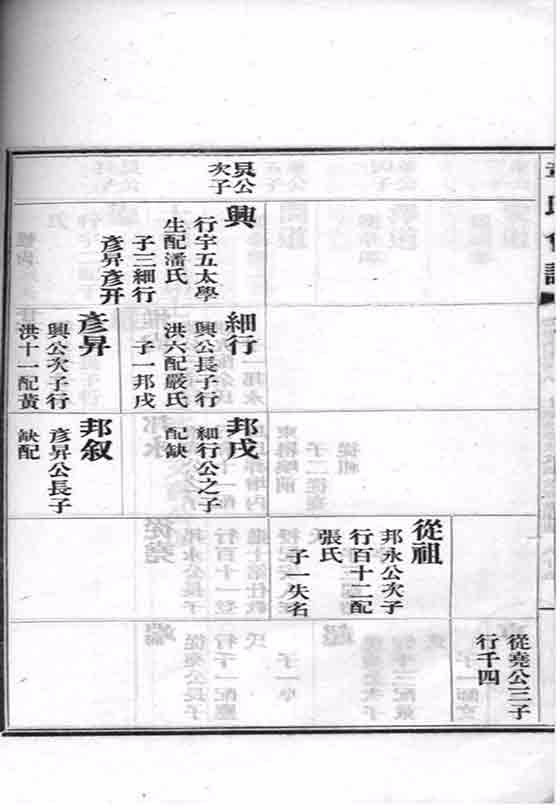 章氏會譜
從堯公三子
行千四
從祖
邦永公次子
行百十二配
張氏
子一失名
昃公
次子
興
行宇五太學
生配潘氏
子三細行
彥昇彥开
細行
興公長子行
洪六配嚴氏
子一邦戌
彥昇
興公次子行
洪十一配黃
邦戌
細行公之子
配缺
邦叙
彥昇公長子
缺配